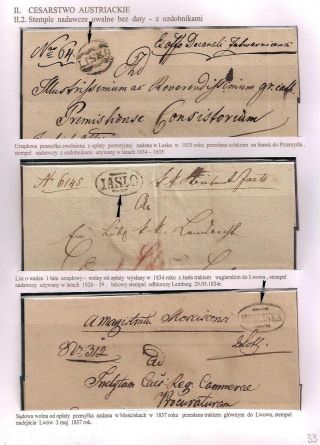 II. CESARSTWO AUSTRIACKIE
II.2. Stemple nadawcze owalne bez daty - z ozdobnikami
Nro 64.
LISKO
Ex Offo Decanali
Illustrissimum ac Reverendissimum gr. cath.
Premisliense Consistorium
Urzędowa przesyłka zwolniona z opłaty portoryjnej nadana w Lesku w 1835 roku przesłana szlakiem na Sanok do Przemyśla, stempel nadawczy z ozdobnikami używany w latach 1834 - 1835.
No 6145
JASŁO
An
Ein Löbl
List o wadze 1 łuta urzędowy - wolny od opłaty wysłany w 1834 roku z Jasła traktem węgierskim do Lwowa, stempel nadawczy używany w latach 1826 - 39, łukowy stempel odbiorczy Lemberg 29.05.1834r.
MOSCISKA
A Magistratu Moscicensi
Nr. 312
Inclytam Caes. Reg. Camerae
Procuraturam
Sądowa wolna od opłaty przesyłka nadana w Mościskach w 1837 roku przesłana traktem głównym do Lwowa, stempel nadejście Lwów 3 maj 1837 rok.
33